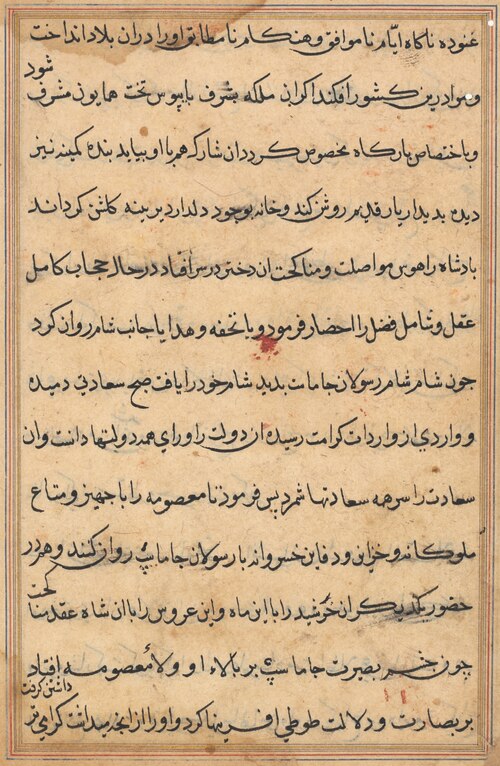 غنوده ناگاه ایّام ناموافق و هنگام نامطابق او را در ان بلاد انداخت
و سوادرین کشور افکند اکر ان ملکه بشرف بابپوس تخت همایون مشرف شود
و باختصاص بارگاه مخصوص کردد ان شارک هم با او بیاید بنده کمینه نیز
دیده بدیدار یار قدیم روشن کند و خانه بوجود دلدار دیرینه گلشن گرداند
بادشاه را هوس مواصلت و مناکحت ان دختر در سر افتاد در حال حجاب کامل
عقل و شامل فضل را احضار فرمود و با تحفه و هدایا جانب شام روان کرد
جون شام شام رسولان جاماست بدید شام خود را یافت صبح سعادتی دمیده
و واردی از واردات کرامت رسیده ان دولت را ورای همه دولتها دانست و ان
سعادت را سرهمه سعادتها شمرد پس فرمود تا معصومه را با جهیز و متاع
ملوکانه و خزاین و دفاین خسروانه با رسولان جاماسپ روان کنند و هم در
حضور یکدیکر ان خورشید را با این ماه و این عروس را با ان شاه عقد مناکحت
چون چشم بصیرت جاماسپ بر بالاء او و ولاء معصومه افتاد
بر بصارت و دلالت طوطی افرینها کرد و او را از انجه میداشت کرامی تر داشتن کرفت